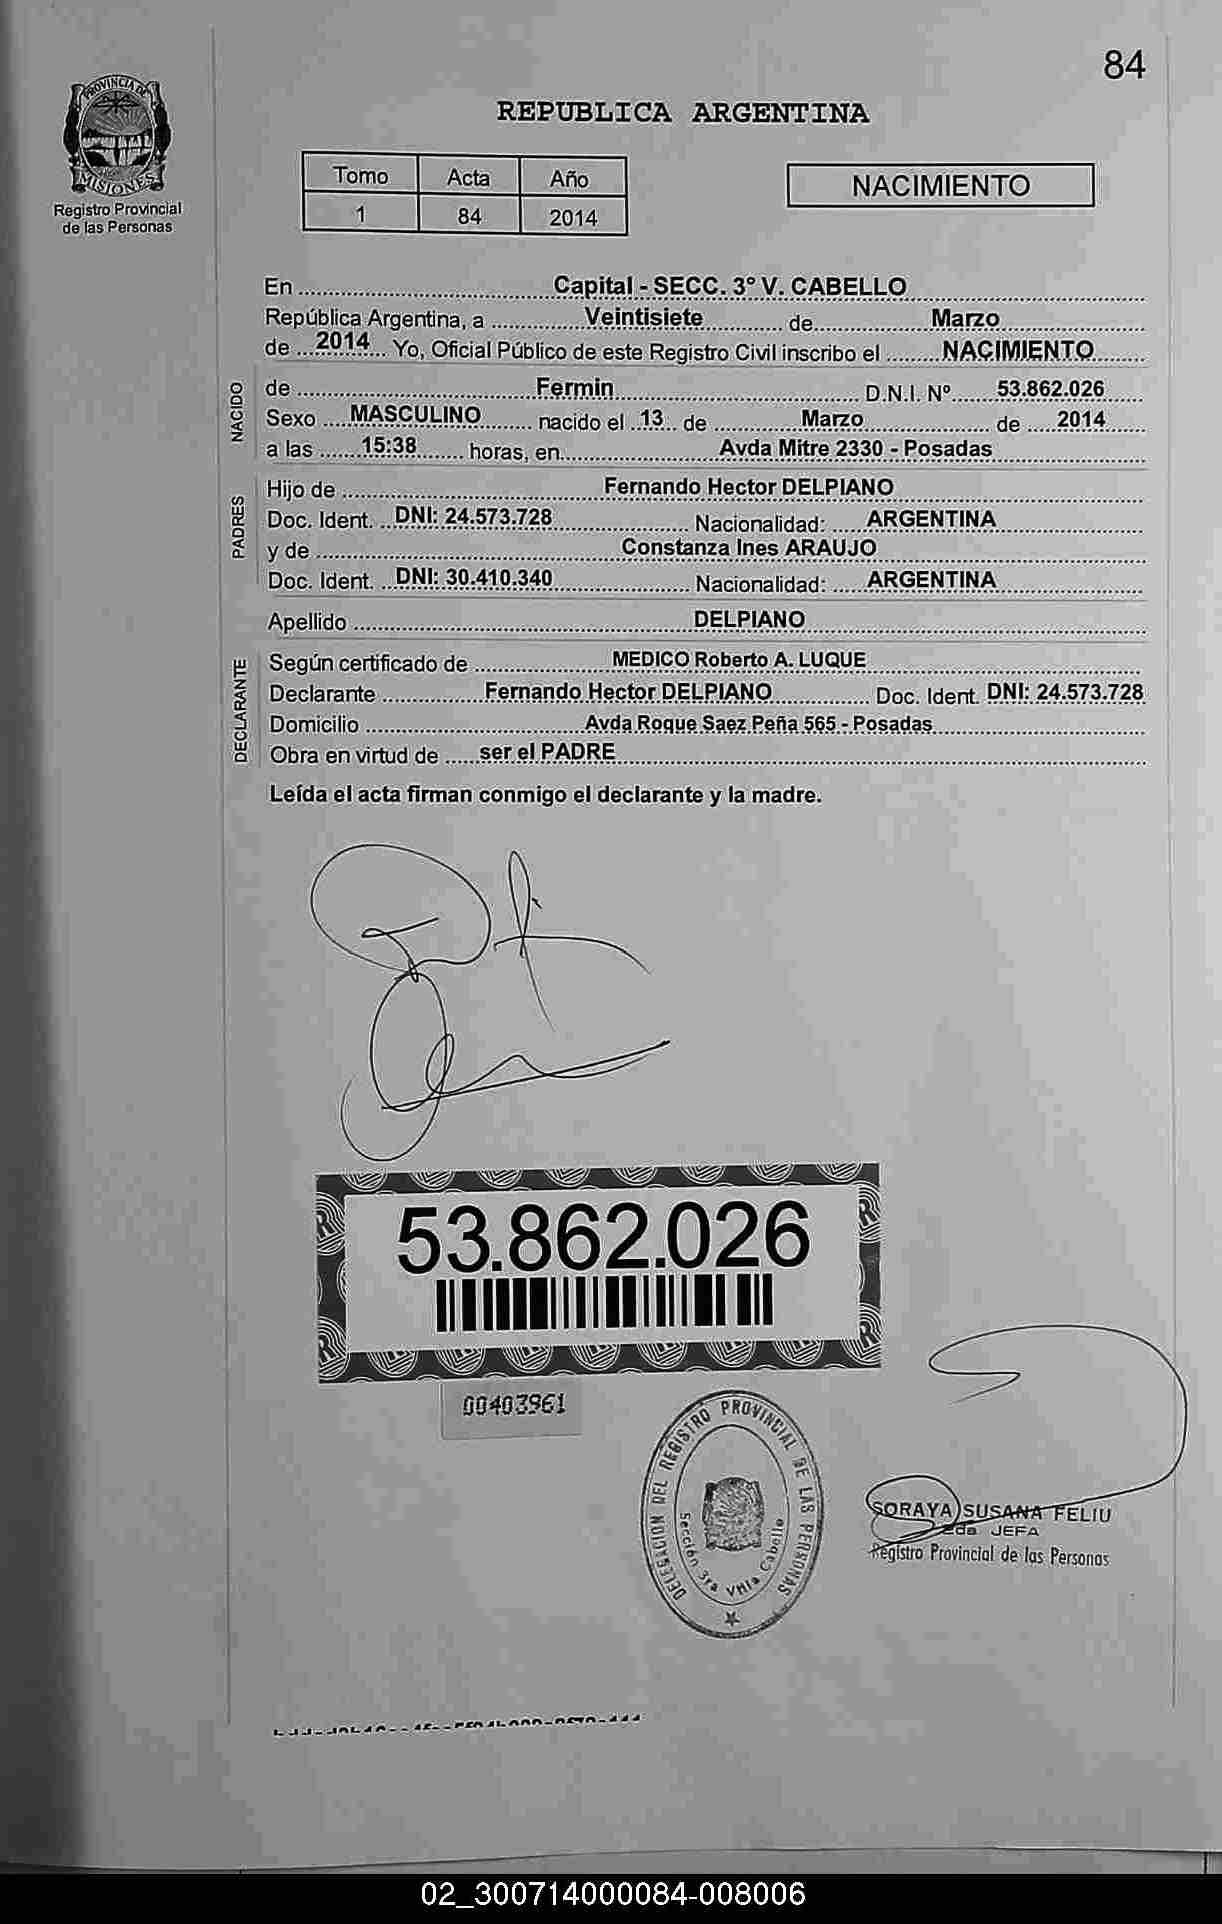 84
PROVINCIA DE
MISIONES
Registro Provincial
de las Personas
REPUBLICA ARGENTINA
Tomo Acta Año
1 84 2014
NACIMIENTO
En Capital - SECC. 3° V. CABELLO
República Argentina, a Veintisiete de Marzo
de 2014 Yo, Oficial Público de este Registro Civil inscribo el NACIMIENTO
NACIDO
de Fermin D.N.I. Nº 53.862.026
Sexo MASCULINO nacido el 13 de Marzo de 2014
a las 15:38 horas, en Avda Mitre 2330 - Posadas
PADRES
Hijo de Fernando Hector DELPIANO
Doc. Ident. DNI: 24.573.728 Nacionalidad: ARGENTINA
y de Constanza Ines ARAUJO
Doc. Ident. DNI: 30.410.340 Nacionalidad: ARGENTINA
Apellido DELPIANO
DECLARANTE
Según certificado de MEDICO Roberto A. LUQUE
Declarante Fernando Hector DELPIANO Doc. Ident. DNI: 24.573.728
Domicilio Avda Roque Saez Peña 565 - Posadas
Obra en virtud de ser el PADRE
Leída el acta firman conmigo el declarante y la madre.
53.862.026
00403961
DELEGACION DEL REGISTRO PROVINCIAL DE LAS PERSONAS
Sección 3ra Villa Cabello
SORAYA SUSANA FELIU
2da JEFA
Registro Provincial de las Personas
02_300714000084-008006